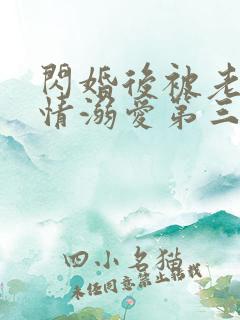 閃婚後被老
情溺愛第三
四小名猫
未任同意禁止转载